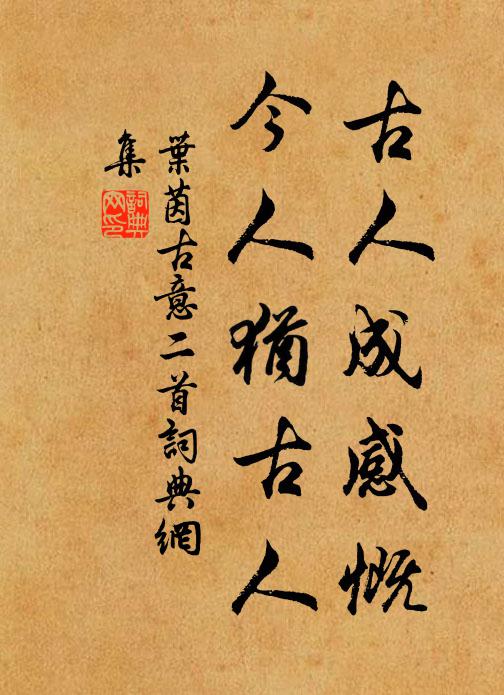 古人成感慨
今人猶古人
葉茵古意二首詞典網
集
詞典网印